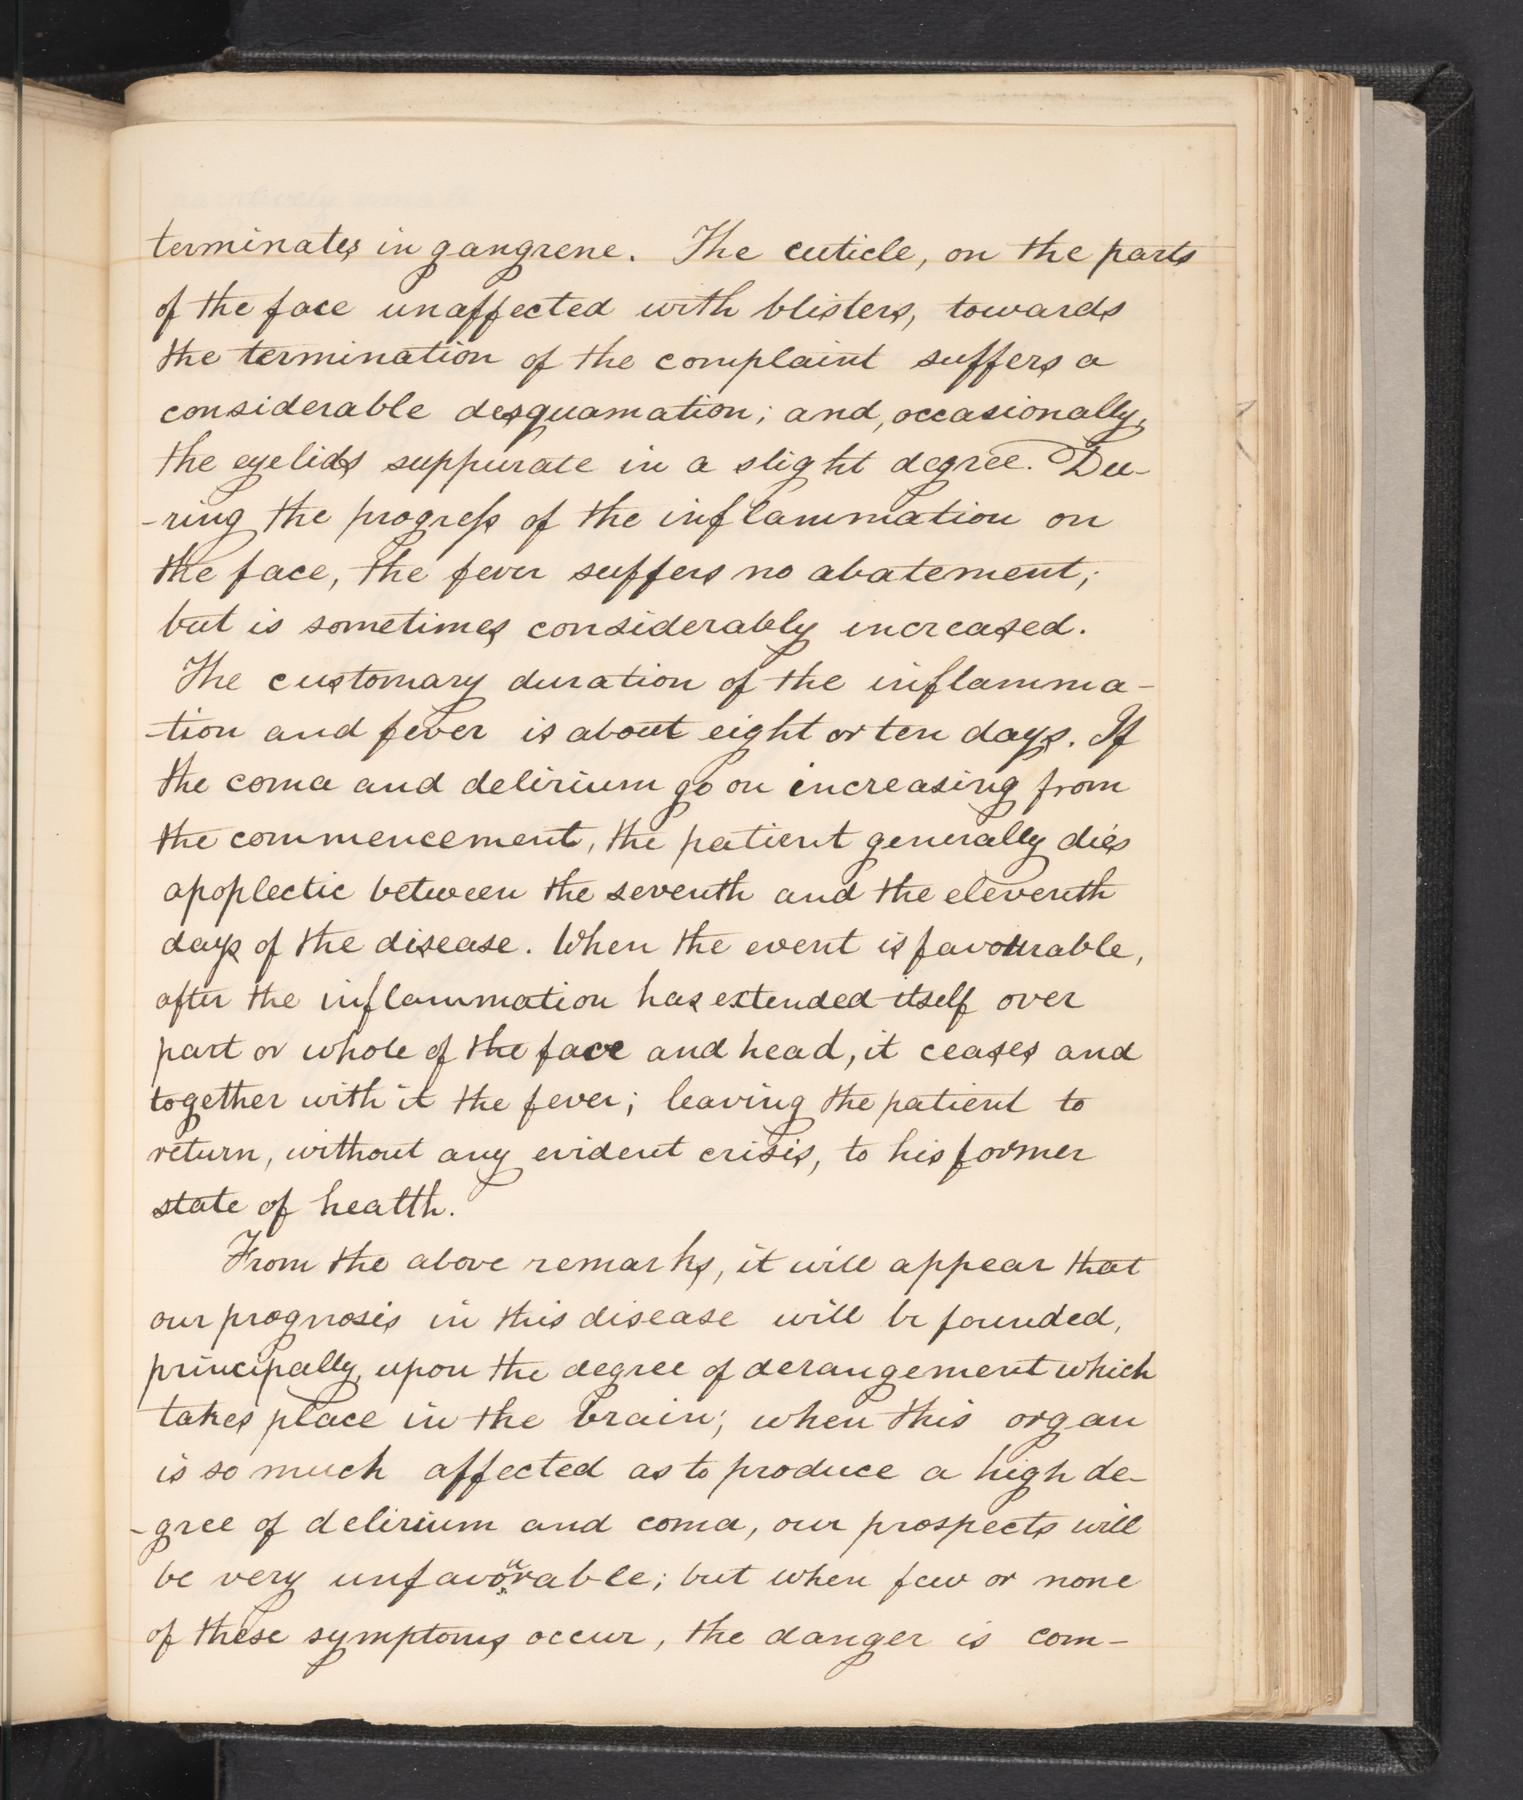 terminates in gangrene. The cuticle, on the parts
of the face unaffected with blisters, towards
the termination of the complaint suffers a
considerable desquamation; and, occasionally,
the eyelids suppurate in a slight degree. Du-
-ring the progreſs of the inflammation on
the face, the fever suffers no abatement;
but is sometimes considerably increased.
The customary duration of the inflamma-
-tion and fever is about eight or ten days. If
the coma and delirium go on increasing from
the commencement, the patient generally dies
apoplectic between the seventh and the eleventh
days of the disease. When the event is favourable,
after the inflammation has extended itself over
part or whole of the face and head, it ceases and
together with it the fever; leaving the patient to
return, without any evident crisis, to his former
state of health.
From the above remarks, it will appear that
our prognosis in this disease will be founded,
principally, upon the degree of derangement which
takes place in the brain; when this organ
is so much affected as to produce a high de-
-gree of delirium and coma, our prospects will
be very unfavourable; but when few or none
of these symptoms occur, the danger is com-